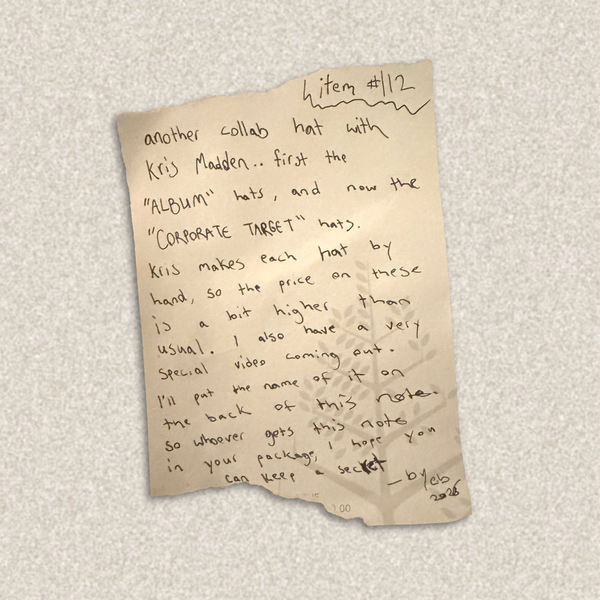 item #112
another collab hat with
Kris Madden.. first the
"ALBUM" hats, and now the
"CORPORATE TARGET" hats.
Kris makes each hat by
hand, so the price on these
is a bit higher than
usual. I also have a very
special video coming out.
I'll put the name of it on
the back of this note.
so whoever gets this note
in your package, I hope you
can keep a secret
1:00